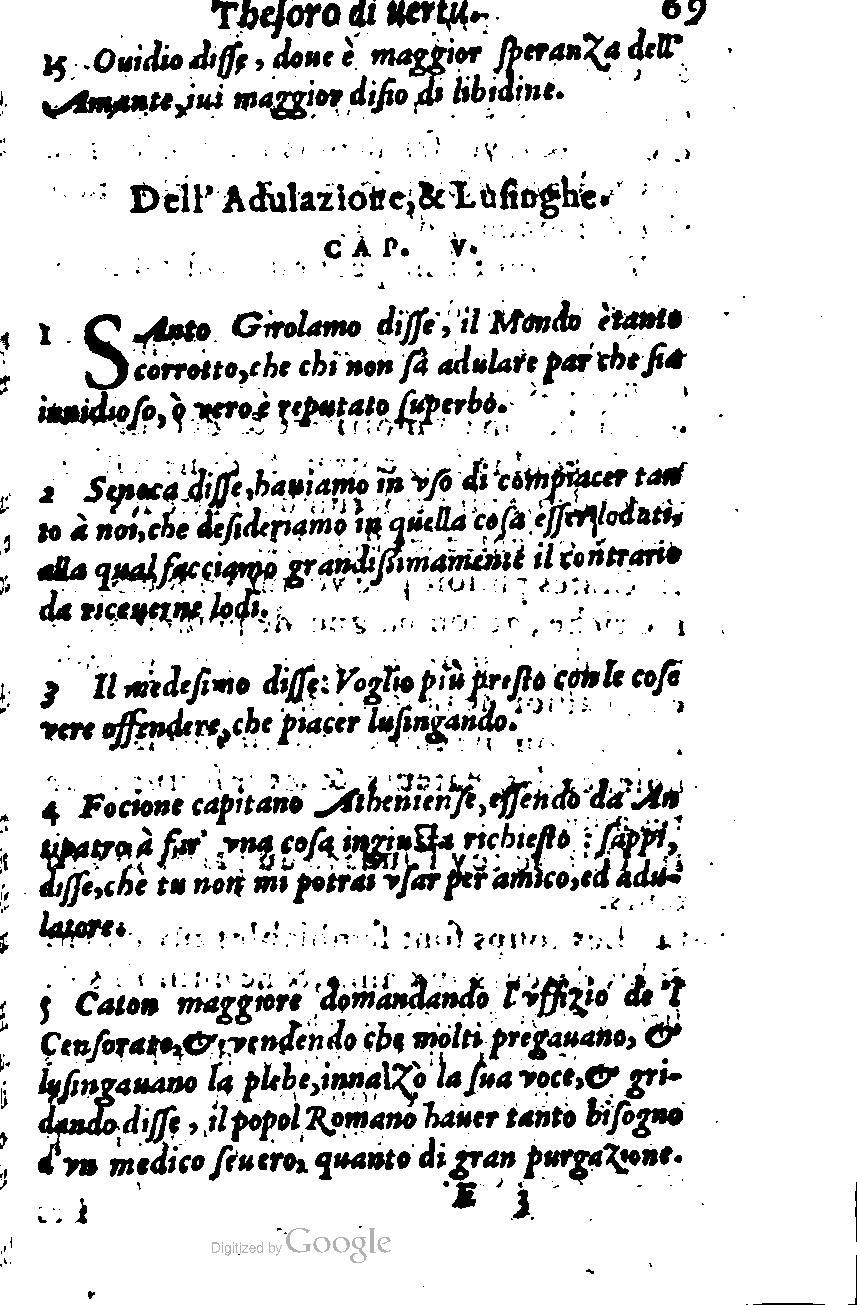 Theſoro di uertu. 69
15 Ouidio diſſe, doue è maggior ſperanza dell'
Amante, iui maggior diſio di libidine.
Dell' Adulazione, & Luſinghe.
CAP. V.
1 SAnto Girolamo diſſe, il Mondo è tanto
corrotto, che chi non ſà adulare par che ſia
inuidioſo, ò vero è reputato ſuperbo.
2 Seneca diſſe, hauiamo in vſo di compiacer tan
to à noi, che deſideriamo in quella coſa eſſer lodati,
alla qual facciamo grandiſſimamente il contrario
da riceuerne lodi.
3 Il medeſimo diſſe: Voglio più preſto con le coſe
vere offendere, che piacer luſingando.
4 Focione capitano Athenienſe, eſſendo da An
tipatro à far' vna coſa ingiuſta richieſto : ſappi,
diſſe, che tu non mi potrai vſar per amico, ed adu-
latore.
5 Caton maggiore domandando l'vffizio de 'l
Cenſorato, & vendendo che molti pregauano, &
luſingauano la plebe, innalzò la ſua voce, & gri-
dando diſſe, il popol Romano hauer tanto biſogno
d'vn medico ſeuero, quanto di gran purgazione.
E 3
Digitized by Google